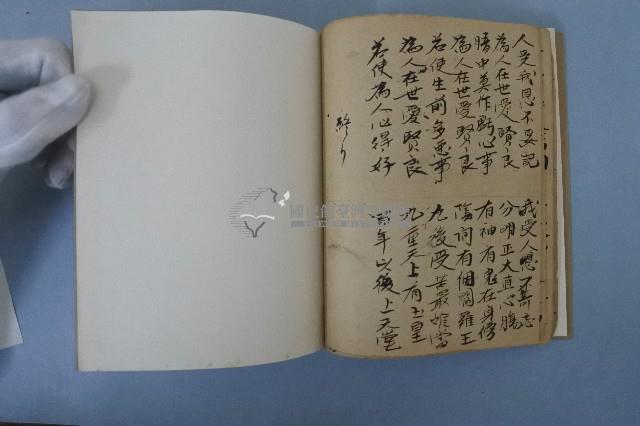 人受我恩不要記 我受人恩不忘
為人在世愛賢良 分明正大直心腸
暗中莫作虧心事 有神有鬼在身傍
為人在世愛賢良 陰詞有個閻羅王
若使生前多惡事 後受苦最难當
為人在世愛賢良 九重天上有玉皇
若使為人心得好 百年以後上天堂
終了
國立臺灣